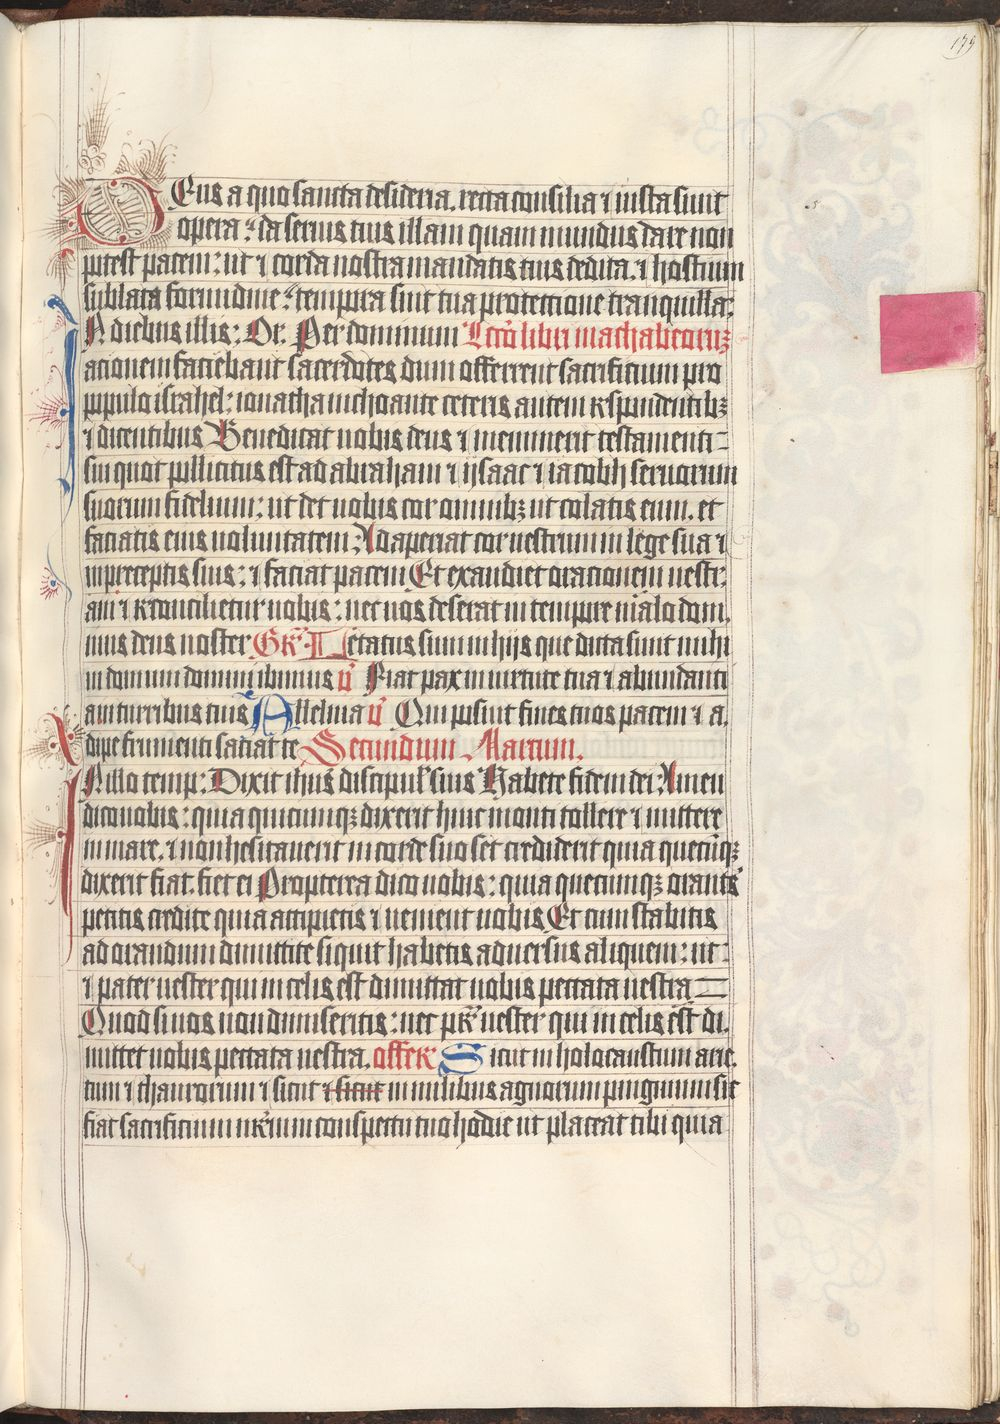 179
Deus a quo sancta desideria, recta consilia ⁊ iusta sunt
opera : da seruis tuis illam quam mundus dare non
potest pacem : ut ⁊ corda nostra mandatis tuis dedita, ⁊ hostium
sublata formidine : tempora sint tua protectione tranquilla :
In diebus illis : Or. Per dominum Lcco libri machabeoruꝫ
acionem faciebant sacerdotes dum offerrent sacrificium pro
populo israhel : ionatha inchoante ceteris autem respondentibꝫ
⁊ dicentibus Benedicat nobis deus ⁊ meminerit testamenti
sui quot pollicitus est ad abraham ⁊ ysaac ⁊ iacobh seruorum
suorum fidelium : ut det uobis cor omnibꝫ ut colatis eum, et
faciatis eius uoluntatem : Adaperiat cor uestrum in lege sua ⁊
in preceptis suis : ⁊ faciat pacem Et exaudiet oracionem uestr
am ⁊ reconcilietur uobis : nec uos deserat in tempore malo dom
inus deus noster Gr̄ Letatus sum in hijs que dicta sunt michi
in domum domini ibimus v̄ Fiat pax in uirtute tua ⁊ abundanti
a in turribus tuis Allelnia v̄ Qui posuit fines tuos pacem ⁊ a
dipe frumenti saciat te Secundum Marcum.
In illo temp : Dixit ihūs discipul' suis Habete fidem dei Amen
dico uobis : quia quicumqꝫ dixerit huic monti tollere ⁊ mittere
in mare, ⁊ non hesitauerit in corde suo set crediderit quia quecūqꝫ
dixerit fiat, fiet ei Propterea dico uobis : quia quecumqꝫ orantes
petitis credite quia accipietis ⁊ uenient uobis Et cum stabitis
ad orandum dimittite si quit habetis aduersus aliquem : ut
⁊ pater uester qui in celis est dimittat uobis peccata uestra
Quod si uos non dimiseritis : nec pr̄ uester qui in celis est di
mittet uobis peccata uestra. offer̄ Sicut in holocaustum arie
tum ⁊ thaurorum ⁊ sicut ⁊ sicut in milibus agnorum pinguium sic
fiat sacrificium nr̄um in conspectu tuo hodie ut placeat tibi quia